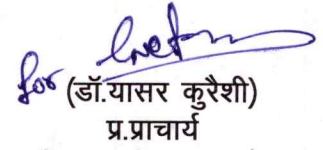 for
(डॉ.यासर कुरैशी)
प्र.प्राचार्य